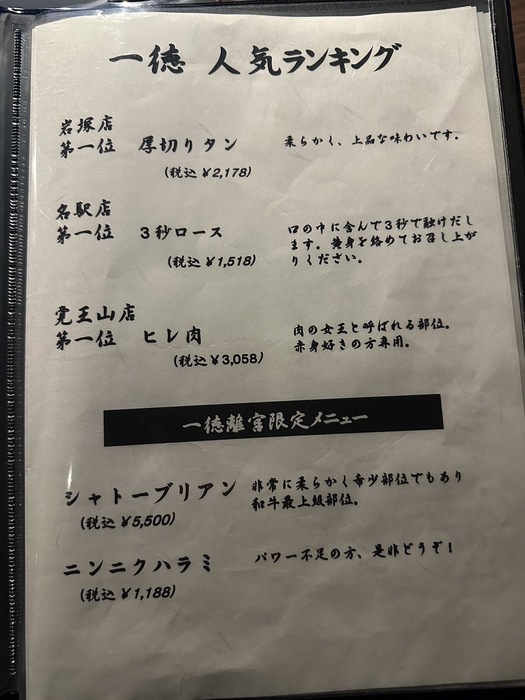 一徳 人気ランキング
岩塚店
第一位 厚切りタン 柔らかく、上品な味わいです。
(税込 ¥2,178)
名駅店
第一位 3秒ロース 口の中に含んで3秒で融けだし
ます。黄身を絡めてお召し上が
りください。
(税込 ¥1,518)
覚王山店
第一位 ヒレ肉 肉の女王と呼ばれる部位。
赤身好きの方専用。
(税込 ¥3,058)
一徳離宮限定メニュー
シャトーブリアン 非常に柔らかく希少部位でもあり
和牛最上級部位。
(税込 ¥5,500)
ニンニクハラミ パワー不足の方、是非どうぞ!
(税込 ¥1,188)